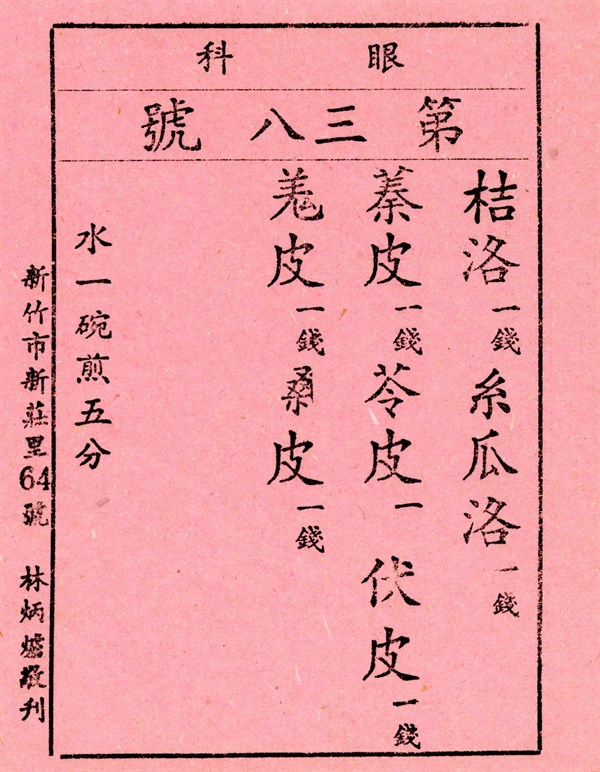 眼科
第三八號
桔洛一錢 糸瓜洛一錢
蓁皮一錢 苓皮一 伏皮一錢
羗皮一錢 桑皮一錢
水一碗煎五分
新竹市新莊里64號 林炳爐敬刊